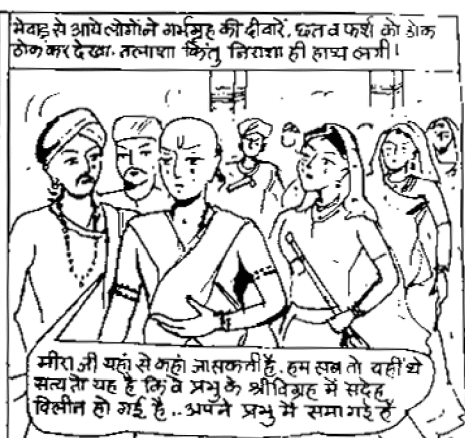 मेवाड़ से आये लोगों ने गर्भगृह की दीवारें, छत व फर्श को ठोक
ठोक कर देखा. तलाशा किंतु निराशा ही हाथ लगी।
मीरा जी यहां से कहां जा सकती है. हम सब तो यहीं थे
सत्य तो यह है कि वे प्रभु के श्रीविग्रह में सदेह
विलीन हो गई है.. अपने प्रभु में समा गई है